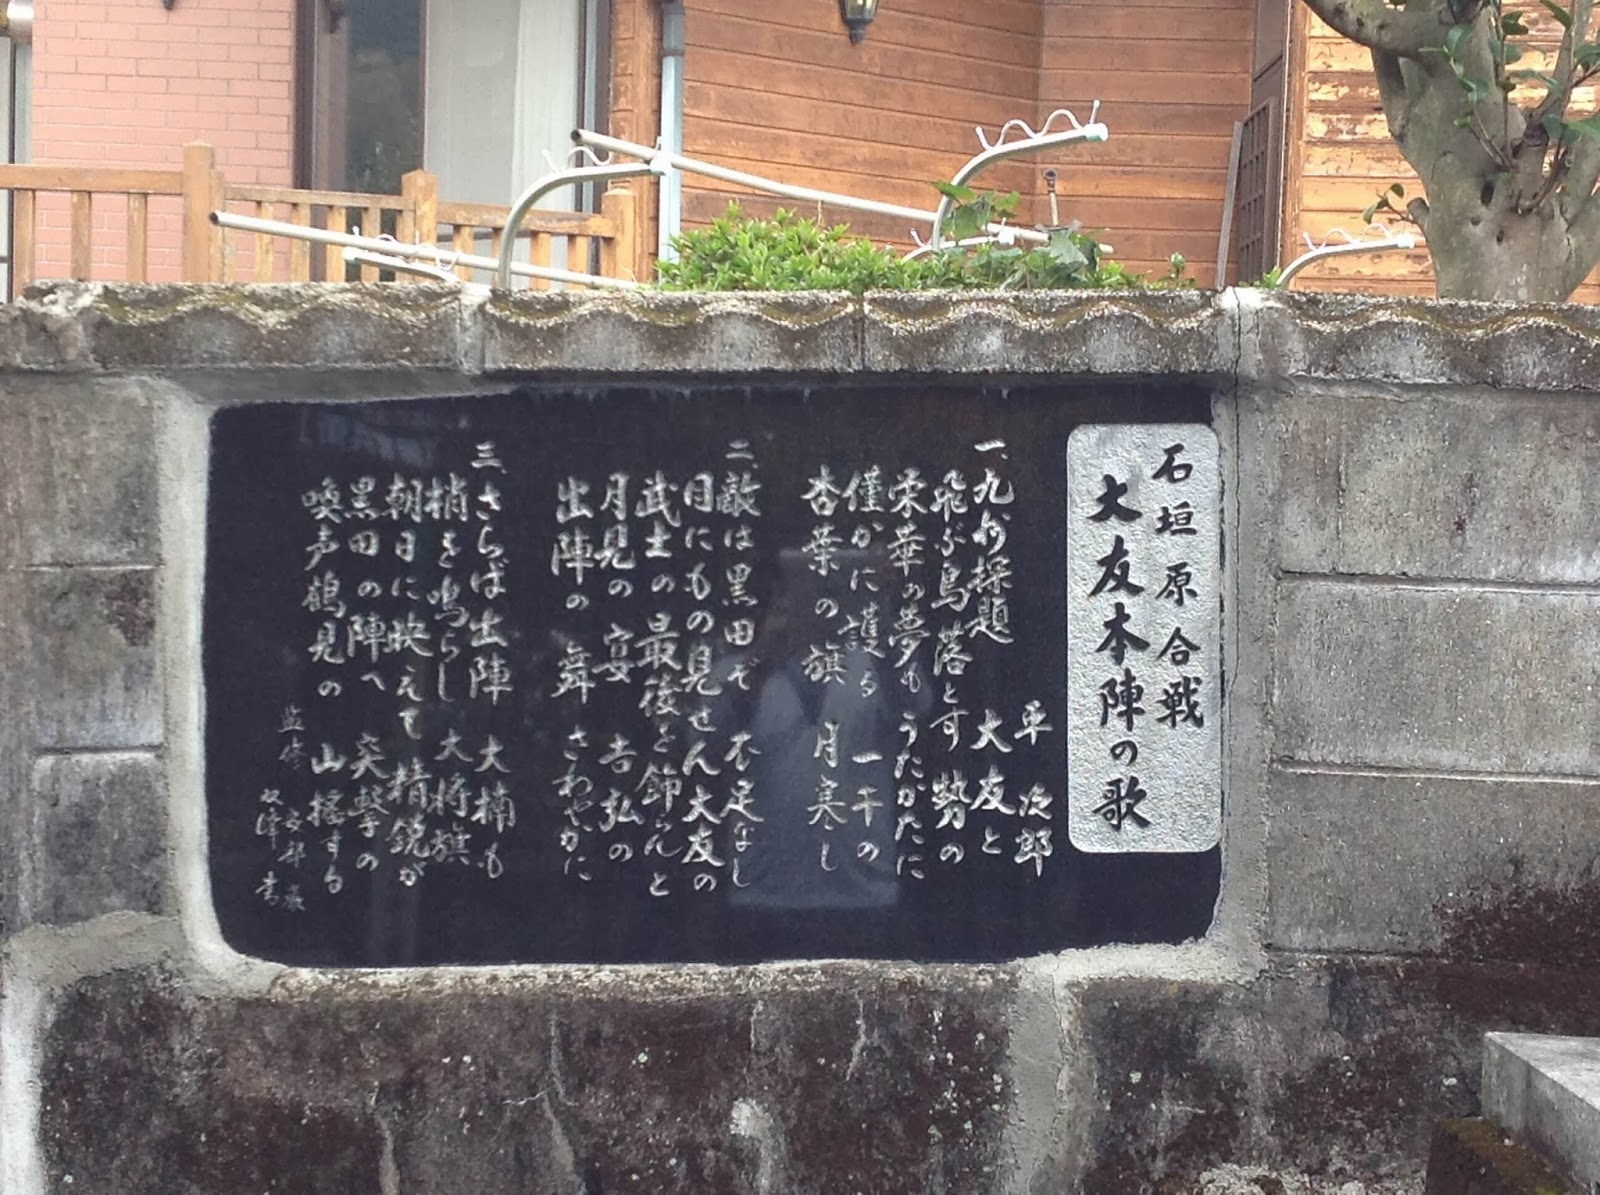 石垣原合戦
大友本陣の歌
平次郎
一、九州探題 大友と
飛ぶ鳥落とす 勢の
栄華の夢も うたかたに
僅かに護る 一千の
杏葉の旗 月寒し
二、敵は黒田ぞ 不足なし
目にもの見せん 大友の
武士の最後を 飾らんと
月見の宴 吉弘の
出陣の舞 さわやかに
三、さらば出陣 大楠も
梢を鳴らし 大将旗
朝日に映えて 精鋭が
黒田の陣へ 突撃の
喚声鶴見の 山揺する
監修 安部巌